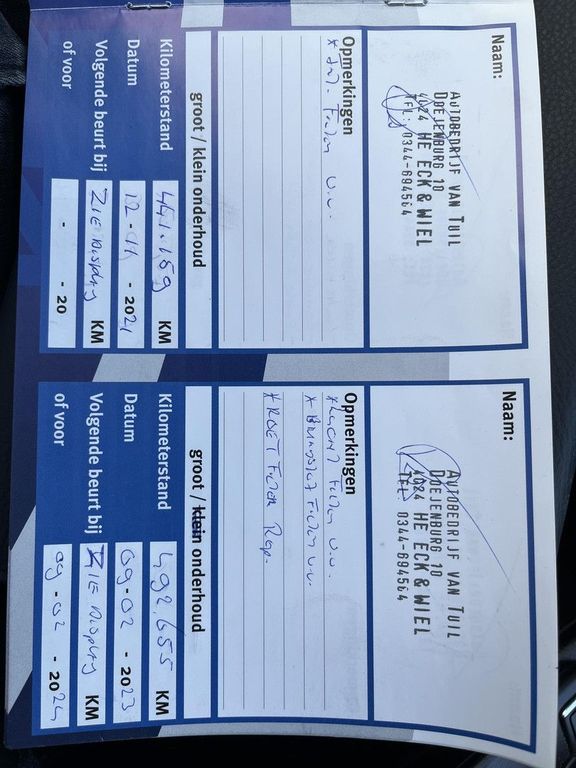 Naam:
AUTOBEDRIJF VAN TUIL
DOEJENBURG 10
4024 HE ECK & WIEL
TEL. 0344-694564
Opmerkingen
* Int. Filter v.v.
groot / klein onderhoud
Kilometerstand 441.159 KM
Datum 12-11 - 2021
Volgende beurt bij ZIE Display KM
of voor - - 20
Naam:
AUTOBEDRIJF VAN TUIL
DOEJENBURG 10
4024 HE ECK & WIEL
TEL. 0344-694564
Opmerkingen
* Lucht Filter v.v.
* Brandstof Filter v.v.
* ROET Filter Rep.
groot / klein onderhoud
Kilometerstand 492.655 KM
Datum 09-02 - 2023
Volgende beurt bij ZIE Display KM
of voor 09-02 - 2024